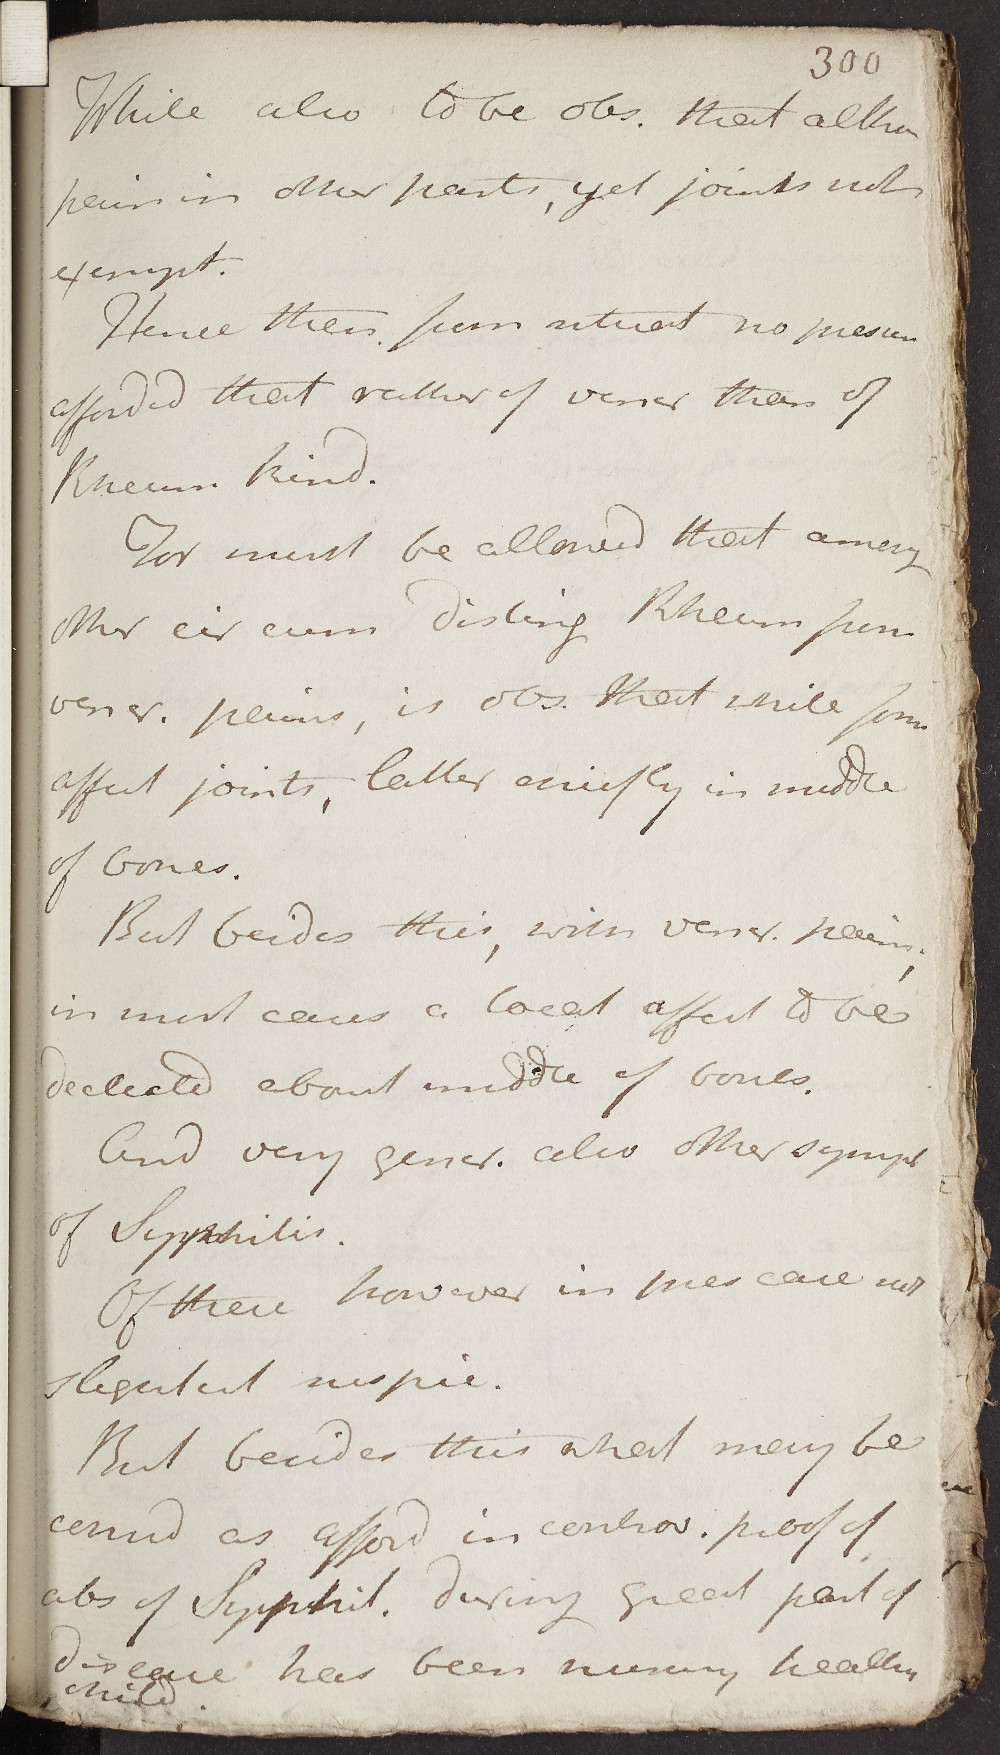 300
While also to be obs. that altho
pain in other parts, yet joints not
exempt.
Hence then from situat no presum
afforded that rather of vener than of
Rheum kind.
For must be allowed that among
other circum disting Rheum from
vener. pains, is obs. that while form
affect joints, latter chiefly in middle
of bones.
But besides this, with vener. pains,
in most cases a local affect to be
detected about middle of bones.
And very gener. also other sympt
of Syphilis.
Of these however in pres case not
slightest suspic.
But besides this what may be
consid as afford incontrov. proof of
abs of Syphil. during great part of
disease has been nursing health
child.